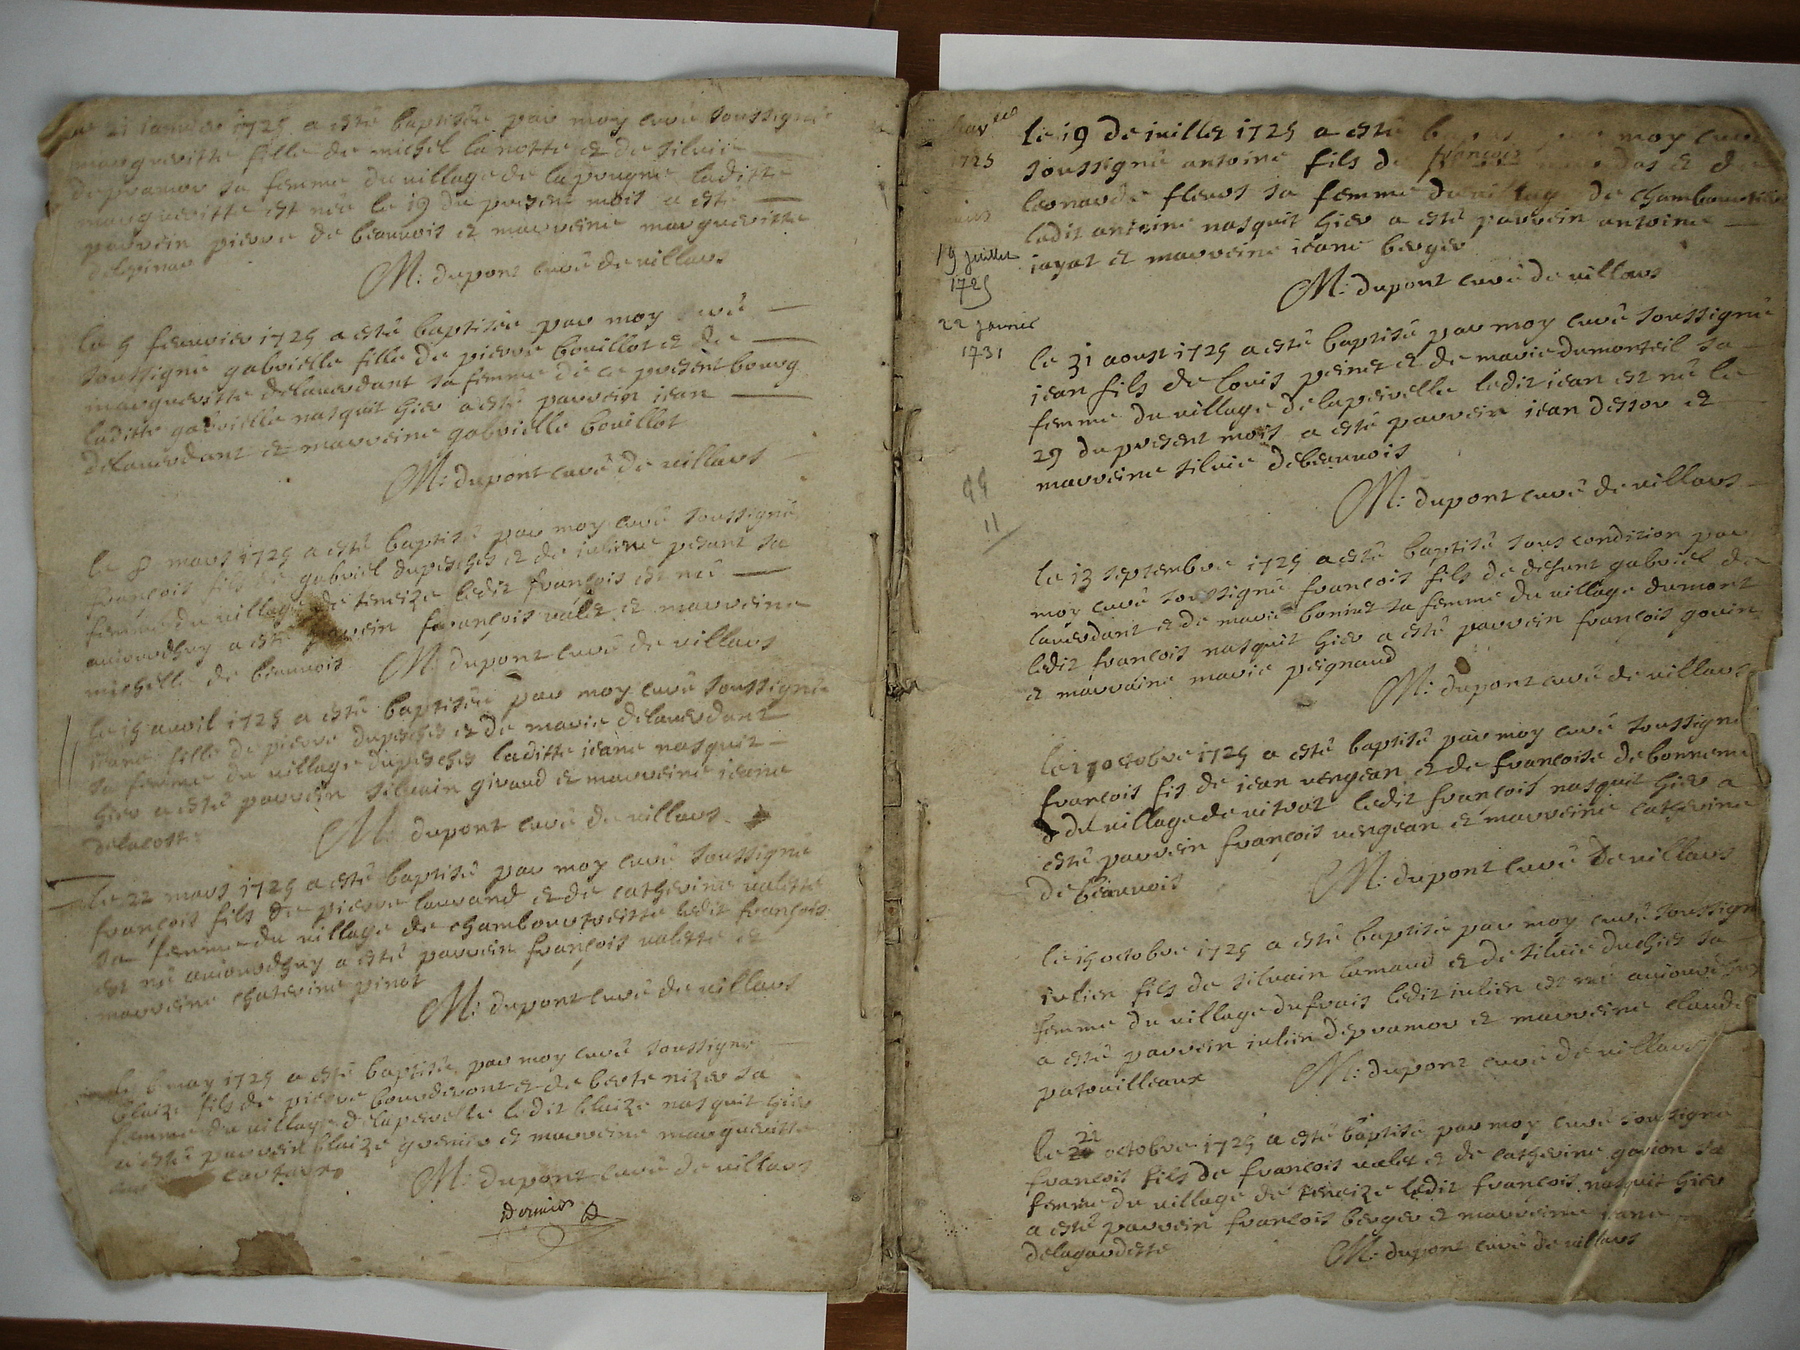 le 21 ianvier 1725 a esté baptisée par moy curé soussigné
margueritte fille de michel lanotte et de silvie
depramor sa femme du village de laprugne laditte
margueritte est née le 19 du present mois a esté
parrein pierre de beauvois et marreine margueritte
M: dupont curé de villars
le 9 feuvrier 1725 a esté baptisée par moy curé
soussigné gabrielle fille de pierre bouillot et de
margueritte delaverdant sa femme de ce present bourg
laditte gabrielle nasquit hier a esté parrein iean
delaverdant et marreine gabrielle bouillot
M: dupont curé de villars
le 8 mars 1725 a esté baptisé par moy curé soussigné
françois fils de gabriel dupesches et de iuliene
femme du village de teneize ledit françois est né
auiourdhuy a esté parrein françois valet et marreine
michelle de beauvois
M: dupont curé de villars
le 15 avril 1725 a esté baptisée par moy curé soussigné
ieane fille de pierre dupesches et de marie delaverdant
sa femme du village dupesches laditte ieane nasquit
hier a esté parrein silvain giraud et marreine ieane
delacoste
M: dupont curé de villars
le 22 mars 1725 a esté baptisé par moy curé soussigné
françois fils de pierre laurand et de catherine valette
sa femme du village de chambourtreitte ledit françois
est né auiourdhuy a esté parrein françois valette et
marreine chaterine pinot
M: dupont curé de villars
le 6 may 1725 a esté baptisé par moy curé soussigné
blaize fils de pierre bourderont et de berte nizer sa
femme du village de laperelle ledit blaize nasquit hier
a esté parrein blaize grenier et marreine margueritte
M: dupont curé de villars
1725
19 juillet
1725
22 janvier
1731
11
le 19 de iuillet 1725 a esté moy curé
soussigné antoine fils de françois et de
leonarde fleurs sa femme du village de
ledit antoine nasquit hier a esté parrein antoine
iayat et marreine ieane berger
M: dupont curé de villars
le 31 aoust 1725 a esté baptisé par moy curé soussigné
iean fils de louis peinet et de marie dumonteil sa
femme du village de laperelle ledit iean est né le
29 du present mois a esté parrein iean dessor et
marreine silvie debeauvois
M: dupont curé de villars
le 13 septembre 1725 a esté baptisé sous condition par
moy curé soussigné françois fils de défunt gabriel de
laverdant et de marie bonnet sa femme du village dumont
ledit françois nasquit hier a esté parrein françois gouin
et marraine marie peignaud
M: dupont curé de villars
octobre 1725 a esté baptisé par moy curé soussigné
françois fis de iean vengean et de françoise debonneme
du village de vitrat ledit françois nasquit hier a
esté parrein françois vengean et marreine catherine
de beauvois
M: dupont curé de villars
le 15 octobre 1725 a esté baptisé par moy curé soussigné
iulien fils de silvain lamaud et de silvie duchier sa
femme du village dufrais ledit iulien est né auiourdhuy
a esté parrein iulien depramor et marreine claude
patouilleaux
M: dupont curé de villars
le 21 octobre 1725 a esté baptisé par moy curé soussigné
françois fils de françois valet et de catherine gorion sa
femme du village de teneize ledit françois nasquit hier
a esté parrein françois berger et marreine ieane
delagardette
M: dupont curé de villars